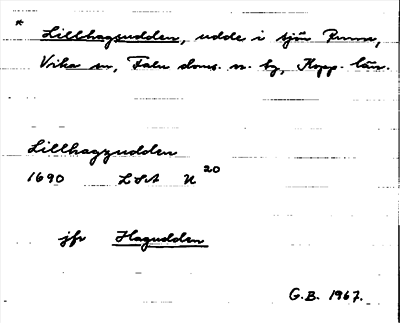 * Lillhagsudden, udde i sjön Runn,
Vika sn, Falu doms. n. bg, Kopp. län.
Lillhagzudden
1690 LSA U 20
jfr Hagudden
G.B. 1967.